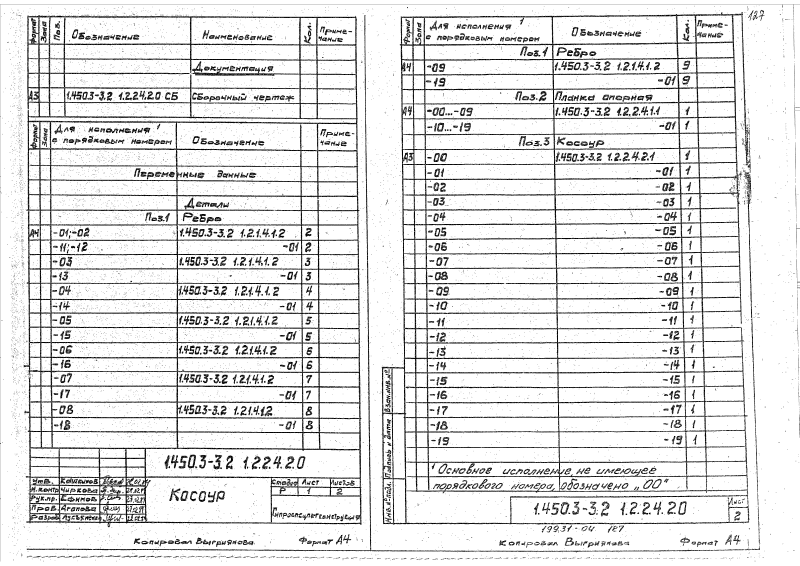 127
Формат
Зона
Поз.
Обозначение
Наименование
Кол.
Приме-
чание
Документация
А3 1.450.3-3.2 1.2.2.4.2.0 СБ Сборочный чертеж
Формат
Зона
Для исполнения ¹
с порядковым номером
Обозначение
Кол.
Приме-
чание
Переменные данные
Детали
Поз.1 Ребро
А4 -01;-02 1.450.3-3.2 1.2.1.4.1.2 2
-11;-12 -01 2
-03 1.450.3-3.2 1.2.1.4.1.2 3
-13 -01 3
-04 1.450.3-3.2 1.2.1.4.1.2 4
-14 -01 4
-05 1.450.3-3.2 1.2.1.4.1.2 5
-15 -01 5
-06 1.450.3-3.2 1.2.1.4.1.2 6
-16 -01 6
-07 1.450.3-3.2 1.2.1.4.1.2 7
-17 -01 7
-08 1.450.3-3.2 1.2.1.4.1.2 8
-18 -01 8
1.450.3-3.2 1.2.2.4.2.0
Утв.
Н.контр. Чиркова
Рук.пр. Ефимов
Пров. Агапова
Разраб.
Косоур
Стадия Лист Листов
Р 1 2
Копировал Выгриянова Формат А4
Формат
Зона
Для исполнения ¹
с порядковым номером
Обозначение
Кол.
Приме-
чание
Поз.1 Ребро
А4 -09 1.450.3-3.2 1.2.1.4.1.2 9
-19 -01 9
Поз.2 Планка опорная
А4 -00...-09 1.450.3-3.2 1.2.2.4.1.1 1
-10...-19 -01 1
Поз.3 Косоур
А3 -00 1.450.3-3.2 1.2.2.4.2.1 1
-01 -01 1
-02 -02 1
-03 -03 1
-04 -04 1
-05 -05 1
-06 -06 1
-07 -07 1
-08 -08 1
-09 -09 1
-10 -10 1
-11 -11 1
-12 -12 1
-13 -13 1
-14 -14 1
-15 -15 1
-16 -16 1
-17 -17 1
-18 -18 1
-19 -19 1
¹ Основное исполнение, не имеющее
порядкового номера, обозначено „00"
Инв.№ подл. Подпись и дата Взам.инв.№
1.450.3-3.2 1.2.2.4.2.0
Лист
2
19931-04 127
Копировал Выгриянова Формат А4